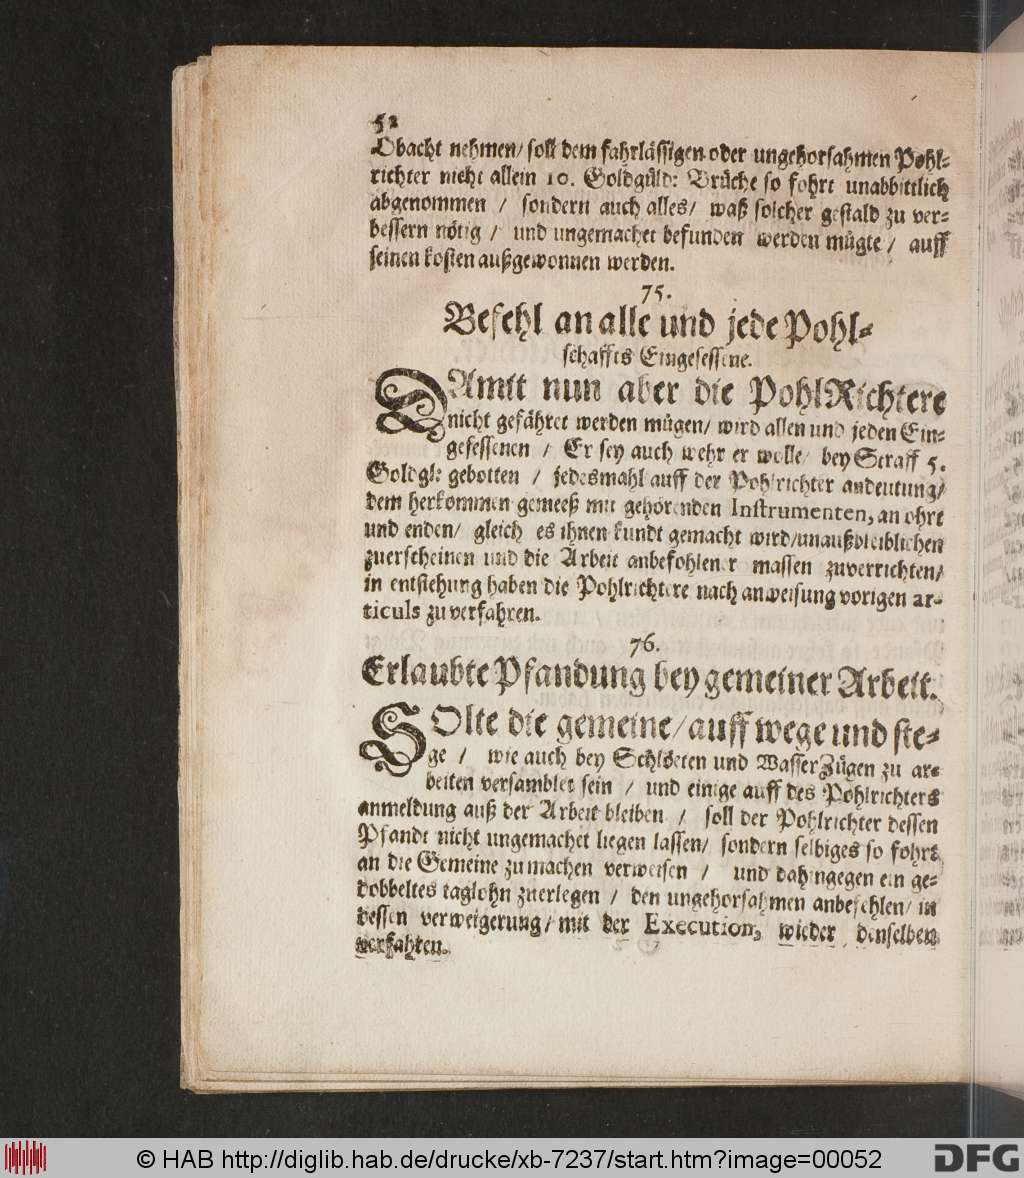 52
Obacht nehmen / soll dem fahrlässigen oder ungehorsahmen Pohl-
richter nicht allein 10. Goldgüld: Brüche so fohrt unabbittlich
abgenommen / sondern auch alles / waß solcher gestald zu ver-
bessern nötig / und ungemachet befunden werden mügte / auff
seinen kosten außgewonnen werden.
75.
Befehl an alle und jede Pohl-
schaffts Eingesessene.
DAmit nun aber die PohlRichtere
nicht gefähret werden mügen / wird allen und jeden Ein-
gesessenen / Er sey auch wehr er wolle / bey Straff 5.
Goldgl: gebotten / jedesmahl auff der Pohlrichter andeutung /
dem herkommen gemeeß mit gehörenden Instrumenten, an ohrt
und enden / gleich es ihnen kundt gemacht wird / unaußbleiblichen
zuerscheinen und die Arbeit anbefohlener massen zuverrichten /
in entstehung haben die Pohlrichtere nach anweisung vorigen ar-
ticuls zu verfahren.
76.
Erlaubte Pfandung bey gemeiner Arbeit.
SOlte die gemeine / auff wege und ste-
ge / wie auch bey Schlöeten und WasserZügen zu ar-
beiten versamblet sein / und einige auff des Pohlrichters
anmeldung auß der Arbeit bleiben / soll der Pohlrichter dessen
Pfandt nicht ungemachet liegen lassen / sondern selbiges so fohrt
an die Gemeine zu machen verweisen / und dahingegen ein ge-
dobbeltes taglohn zuerlegen / den ungehorsahmen anbefehlen / in
dessen verweigerung / mit der Execution, wieder denselben
verfahren.
© HAB http://diglib.hab.de/drucke/xb-7237/start.htm?image=00052
DFG